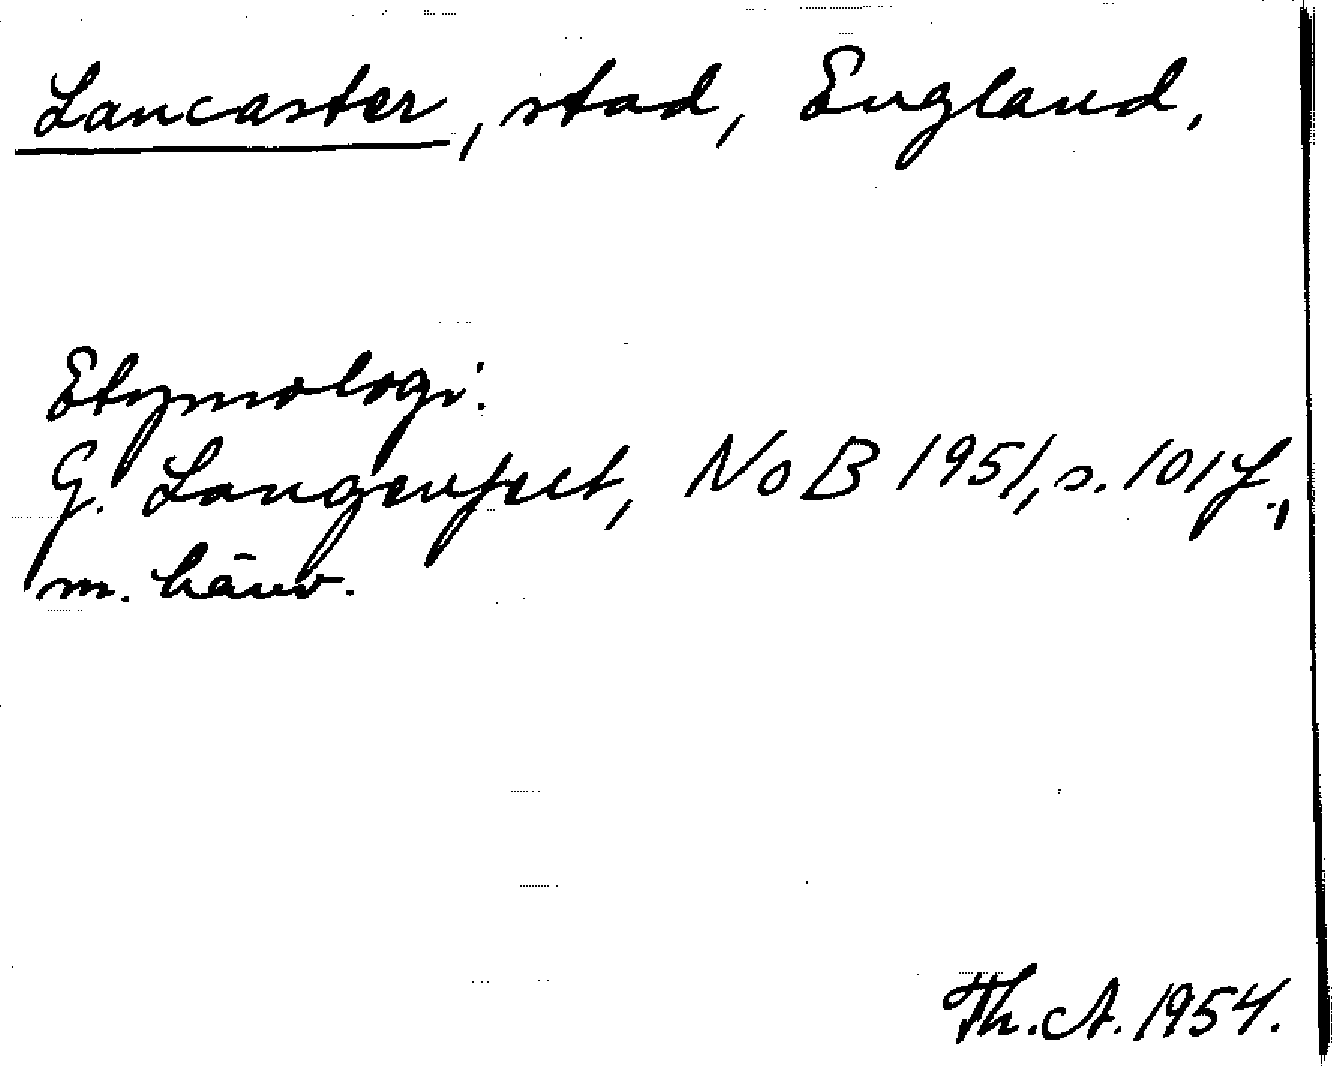 Lancaster, stad, England,
Etymologi:
G. Langenfelt, NoB 1951, s. 101 f.,
m. hänv.
Th. A. 1954.